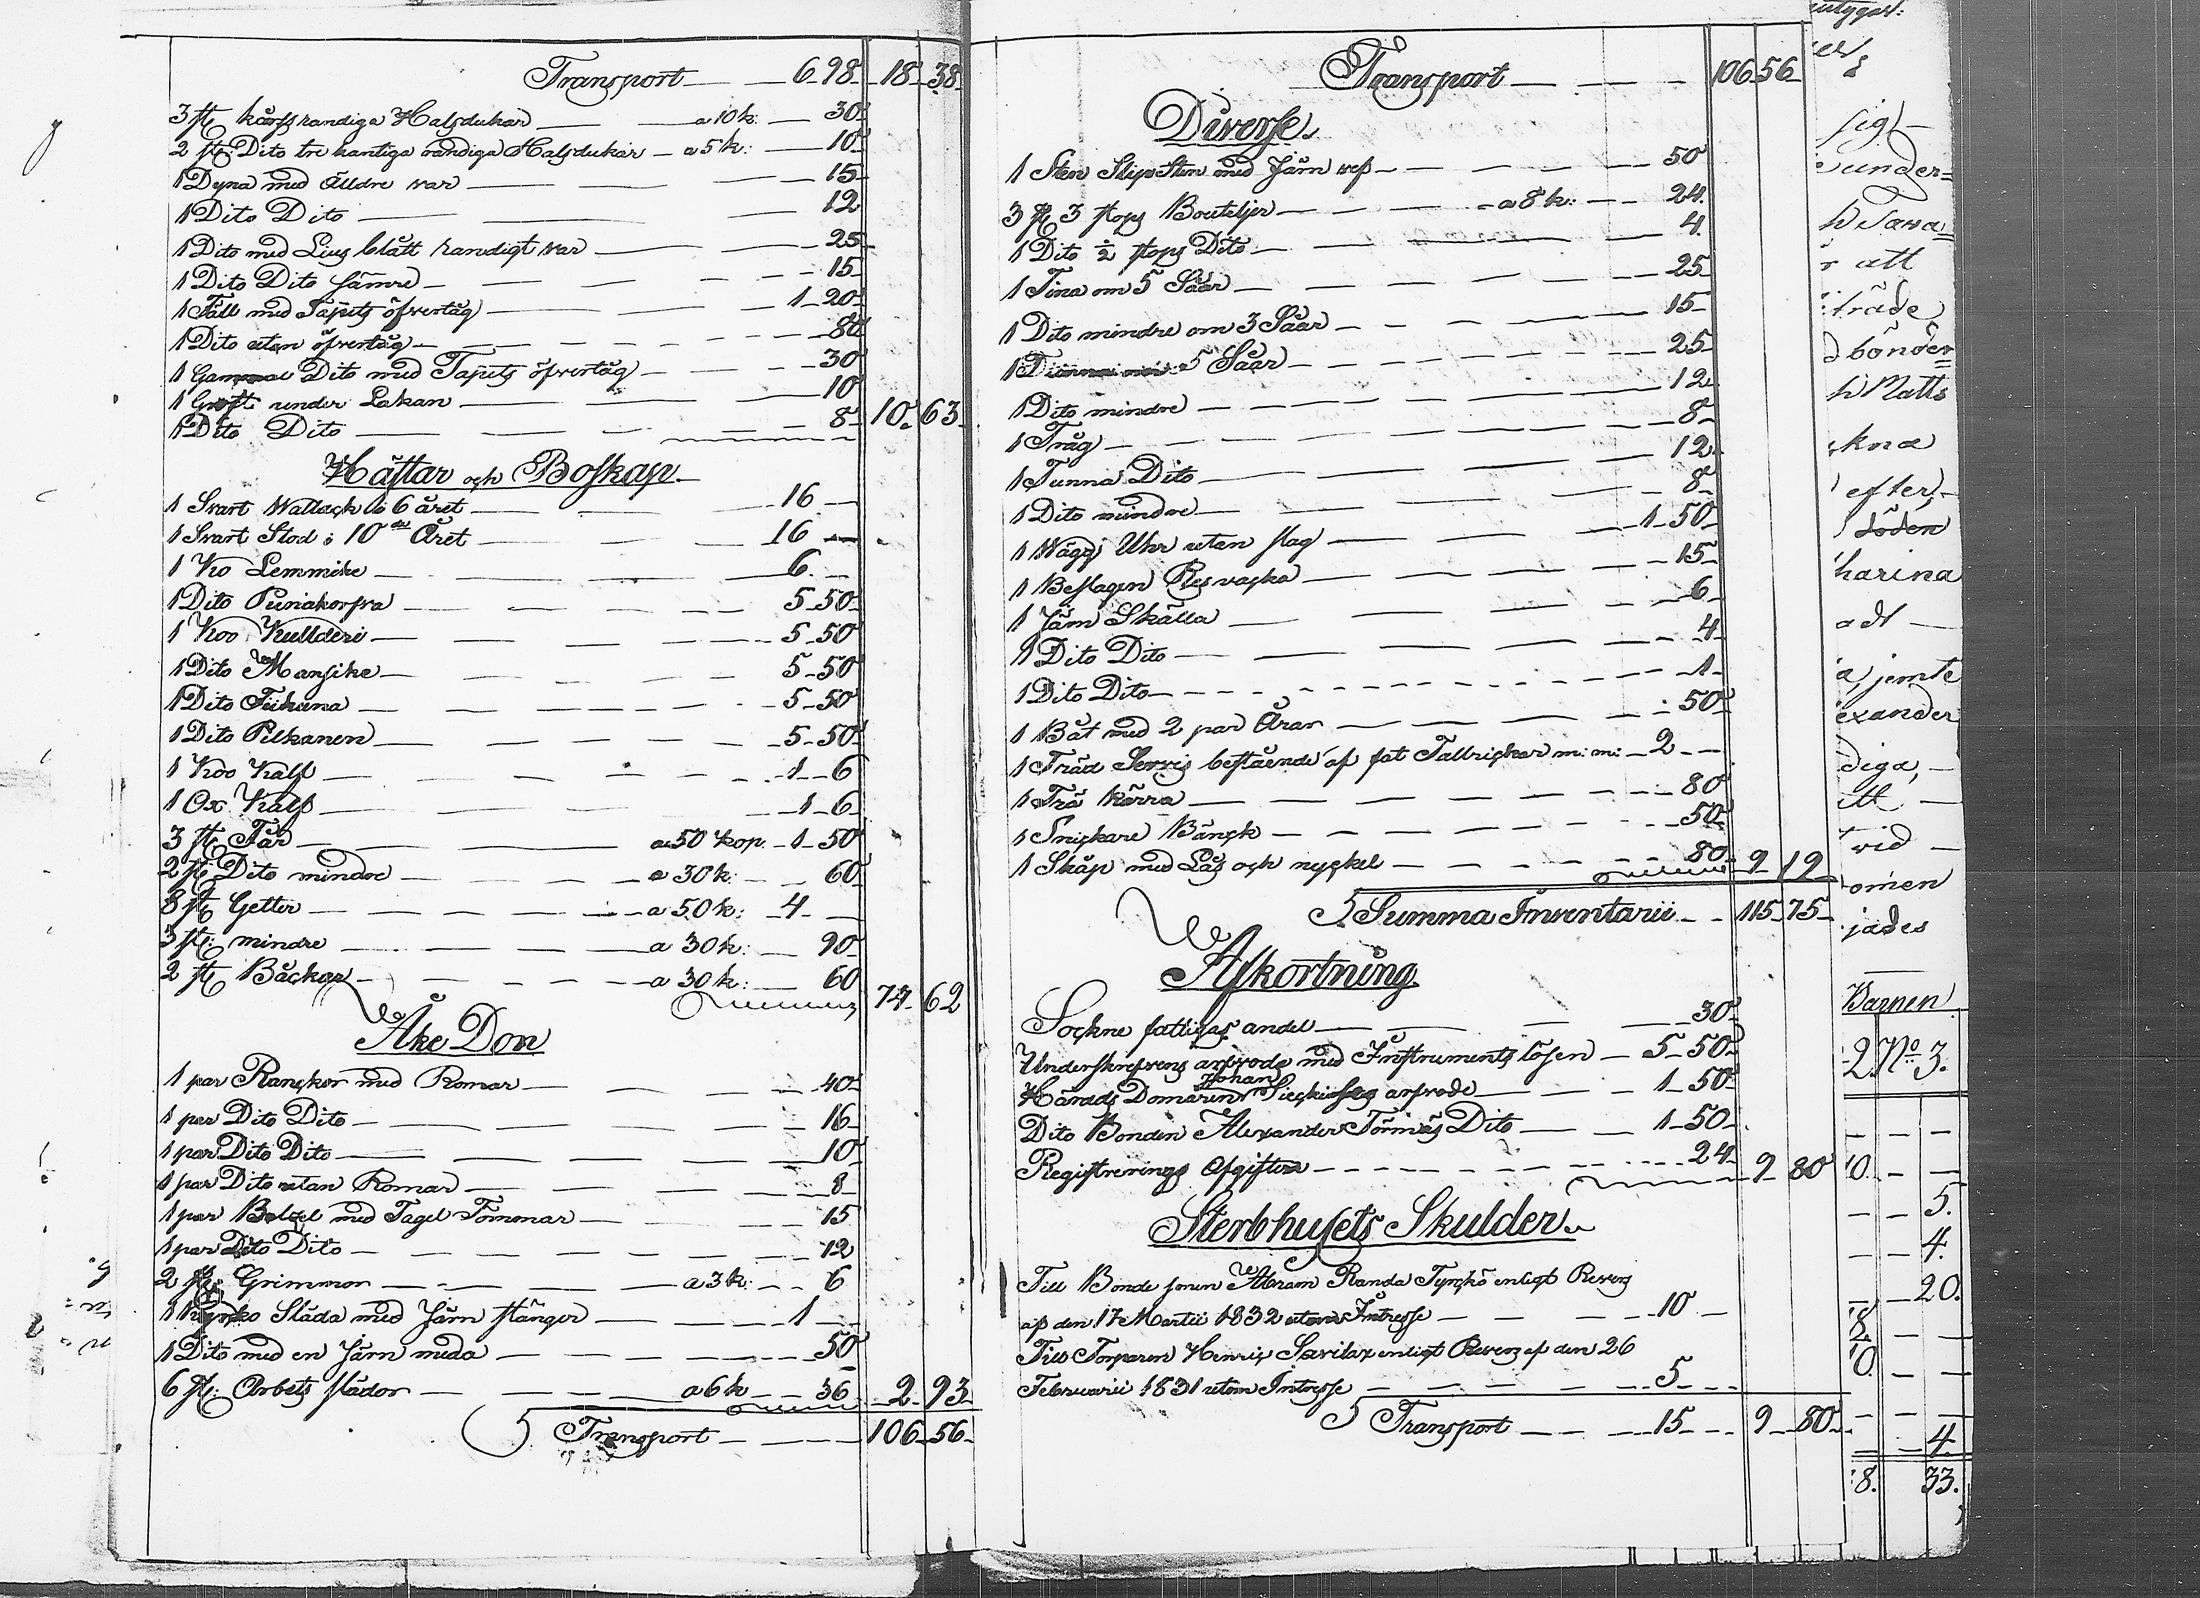 Transport 6 98 18 38
3 st. korssrandiga Halsdukar a 10 k: 30
2 st. Dito tre kantiga randiga Halsdukar a 5 k: 10
1 Dyna med Älldre var 15
1 Dito Dito 12
1 Dito med Lius blått randigt var 25
1 Dito Dito sämre 15
1 Fäll med Tapits öfvertåg 1 20
1 Dito utan öfvertåg 80
1 Gammal Dito med Tapits öfvertåg 30
1 Groft under Lakan 10
1 Dito Dito 8 10 63
Hästar och Boskap
1 Svart Wallack i 6 året 16
1 Svart Stod i 10de Året 16
1 Ko Lemmike 6
1 Dito Puniakorfva 5 50
1 Koo Kullderi 5 50
1 Dito Mansike 5 50
1 Dito Tiikuna 5 50
1 Dito Pilkanen 5 50
1 Koo Kalf 1 6
1 Ox Kalf 1 6
3 st. Får a 50 kop. 1 50
2 st. Dito mindre a 30 k: 60
8 st. Getter a 50 k: 4
3 st. mindre a 30 k: 90
2 st. Båckar a 30 k: 60
77 62
Åke Don
1 par Ranckor med Romor 40
1 par Dito Dito 16
1 par Dito Dito 10
1 par Dito utan Romar 8
1 par Betzel med Tagel Tömmar 15
1 par Dito Dito 12
2 st. Grimmor a 3 k: 6
1 Kyrko Släda med Järn stänger 1
1 Dito med en Järn meda 50
6 st. Arbets slädor a 6 k 36 2 93
Transport 106 56
Transport 106 56
Diverse
1 Sten Slip Sten med Järn vef 50
3 st. 3 stops Bouteljer a 8 k: 24
1 Dito ½ stops Dito 4
1 Tina om 5 Såar 25
1 Dito mindre om 3 Såar 15
1 5 Såar 25
1 Dito mindre 12
1 Tråg 8
1 Tunna Dito 12
1 Dito mindre 8
1 Wägg Uhr utan slag 1 50
1 Beslagen Resvaska 15
1 Järn Skälla 6
1 Dito Dito 4
1 Dito Dito 1
1 Båt med 2 par Åror 50
1 Träd Servis bestående af fat Tallrickar m: m: 2
1 Trä kärra 80
1 Snickare Bänck 50
1 Skåp med Lås och nyckel 80 9 19
Summa Inventarii 115 75
Afkortning
Sockne fattigas andel 30
Underskrefvens arfvode med Instruments lösen 5 50
Johan
Härads Domaren arfvode 1 50
Dito Bonden Alexander Törmäs Dito 1 50
Registrerings Afgiften 24 9 80
Sterbhusets Skulder
Till Bonde sonen Abram Randa Tyrskö enligt Revers
af den 17 Martii 1832 utom Intresse 10
Till Torparen Henric Savilax enligt Revers af den 26
Februarii 1831 utom Intresse 5
Transport 15 9 80
sig
under=
h Tava=
att
träde
bönder=
h Matts
kna
efter,
döden
harina
adt
a, jemte
exander
diga,
vid
omen
jades
Barnen
2. No 3.
0.
5.
4.
20.
8.
0.
4.
8. 33.